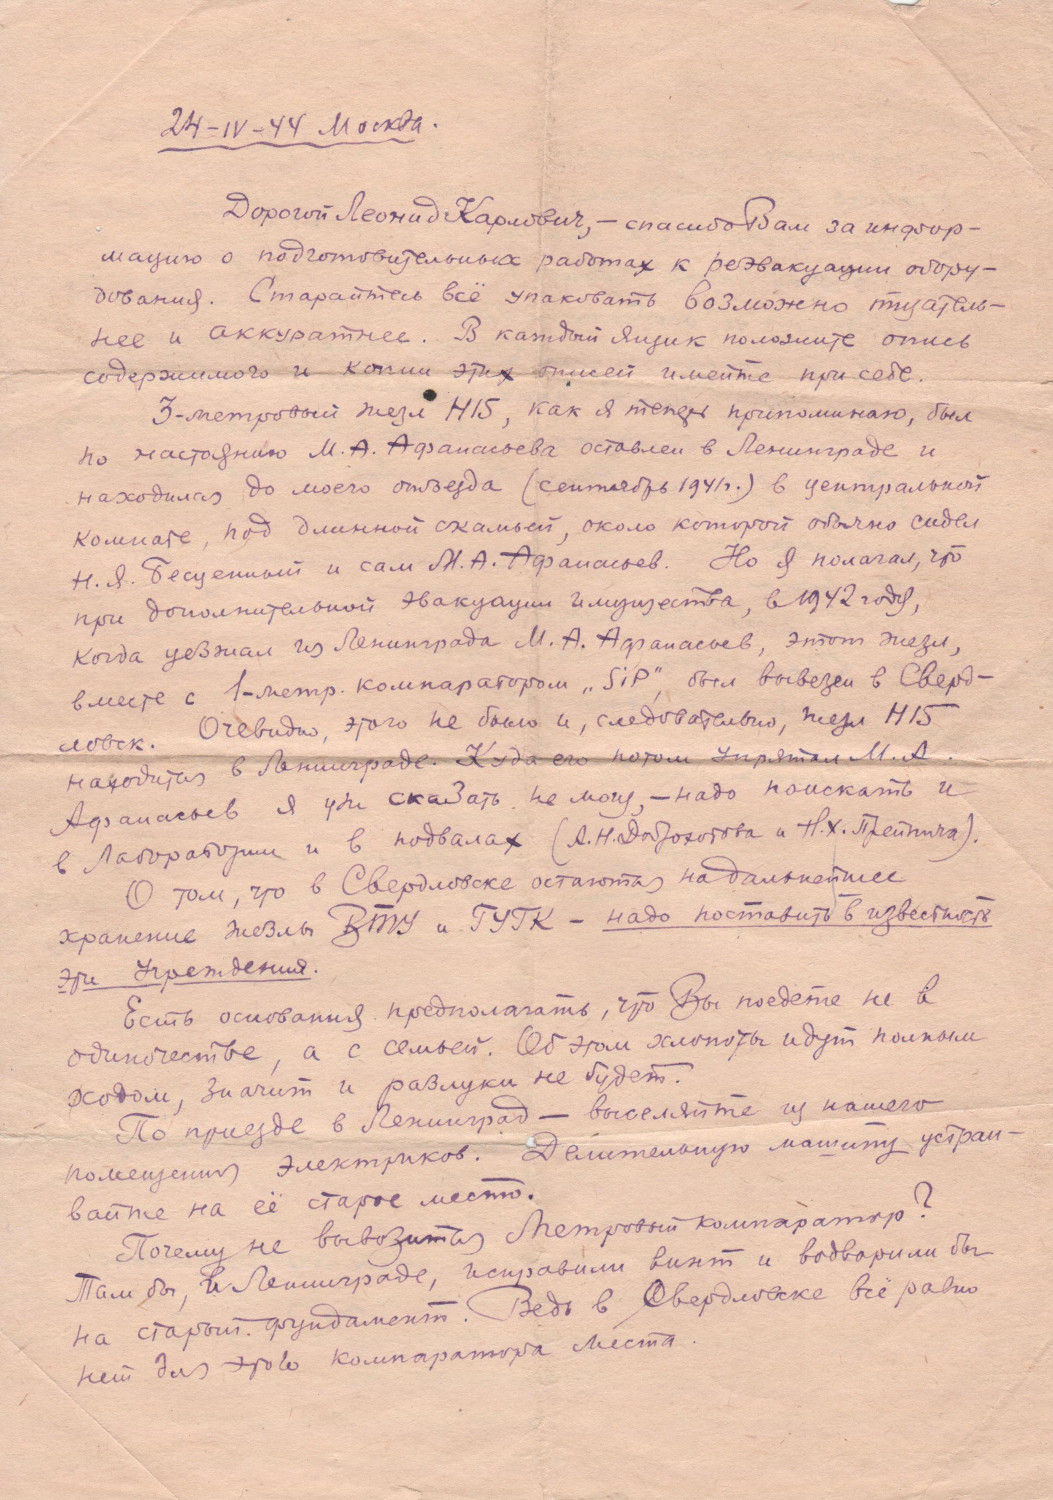 24-IV-44 Москва.
Дорогой Леонид Карлович, – спасибо Вам за инфор-
мацию о подготовительных работах к реэвакуации обору-
дования. Старайтесь всё упаковать возможно тщатель-
нее и аккуратнее. В каждый ящик положите опись
содержимого и копии этих описей имейте при себе.
3-метровый жезл Н15, как я теперь припоминаю, был
по настоянию М.А. Афанасьева оставлен в Ленинграде и
находился до моего отъезда (сентябрь 1941г.) в центральной
комнате, под длинной скамьей, около которой обычно сидел
Н.Я. Бесценный и сам М.А. Афанасьев. Но я полагал, что
при дополнительной эвакуации имущества, в 1942 году,
когда уезжал из Ленинграда М.А. Афанасьев, этот жезл,
вместе с 1-метр. компаратором „SIP“, был вывезен в Сверд-
ловск. Очевидно, этого не было и, следовательно, жезл Н15
находится в Ленинграде. Куда его потом упрятал М.А.
Афанасьев я уж сказать не могу, – надо поискать и
в Лаборатории и в подвалах (А.Н. Доброхотова и Н.Х. Прейпича).
О том, что в Свердловске остаются на дальнейшее
хранение жезлы ВТУ и ГУГК – надо поставить в известность
эти учреждения.
Есть основания предполагать, что Вы поедете не в
одиночестве, а с семьей. Об этом хлопоты идут полным
ходом, значит и разлуки не будет.
По приезде в Ленинград – выселяйте из нашего
помещения электриков. Делительную машину устраи-
вайте на её старое место.
Почему не вывозится Метровый компаратор?
Там бы, в Ленинграде, исправили винт и водворили бы
на старый фундамент. Ведь в Свердловске всё равно
нет для этого компаратора места.